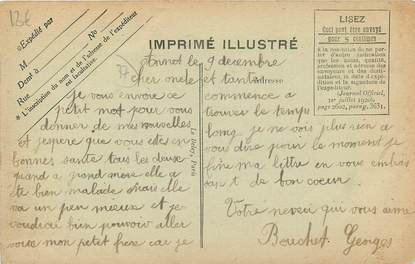 12€
Expédié par
M
Dem<sup>t</sup> à
Rue
* L'inscription du nom et de l'adresse de l'expéditeur
est facultative.
IMPRIMÉ ILLUSTRÉ
Adresse
LISEZ
Ceci peut être envoyé
pour 5 centimes
à la condition de ne por-
ter d'autre indication
que les nom, qualité,
profession et adresse des
envoyeur et destinataire,
la date d'expédition et
la signature de
l'expéditeur.
(Journal Officiel,
1er juillet 1926,
page 2602, paragr. 3651.
Le Deley, Paris
Annot le 9 décembre
cher oncle
je vous envoie ce
petit mot pour vous
donner de mes nouvelles
et j'espere que vous etes en
bonnes sante tous les deux
quand a grand mere elle a
ete bien malade mais elle
va un peu mieux et je
voudrai bien pouvoir aller
voir mon petit frere car je
et tante
commence a
trouver le temps
long je ne vous plus rien a
vous dire pour le moment je
fini ma lettre en vous embras
ant de bon coeur.
Votre neveu qui vous aime
Bouchet Georges